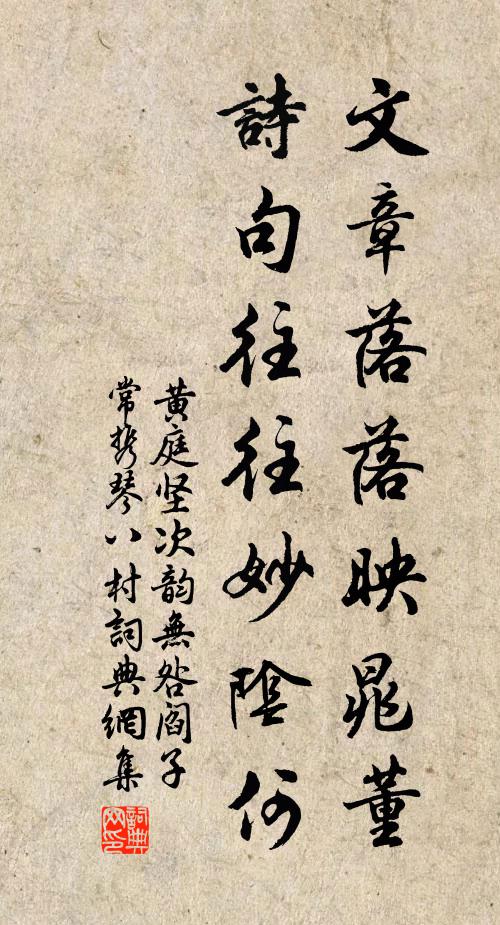 文章落落映晁董
詩句往往妙陰何
黄庭坚次韵無咎閻子
常携琴入村詞典網集
詞典网印